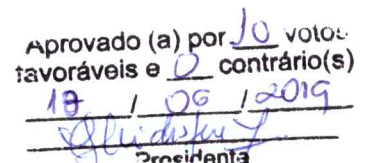 Aprovado (a) por 10 votos
favoráveis e 0 contrário(s)
/ 06 / 2019
Presidenta